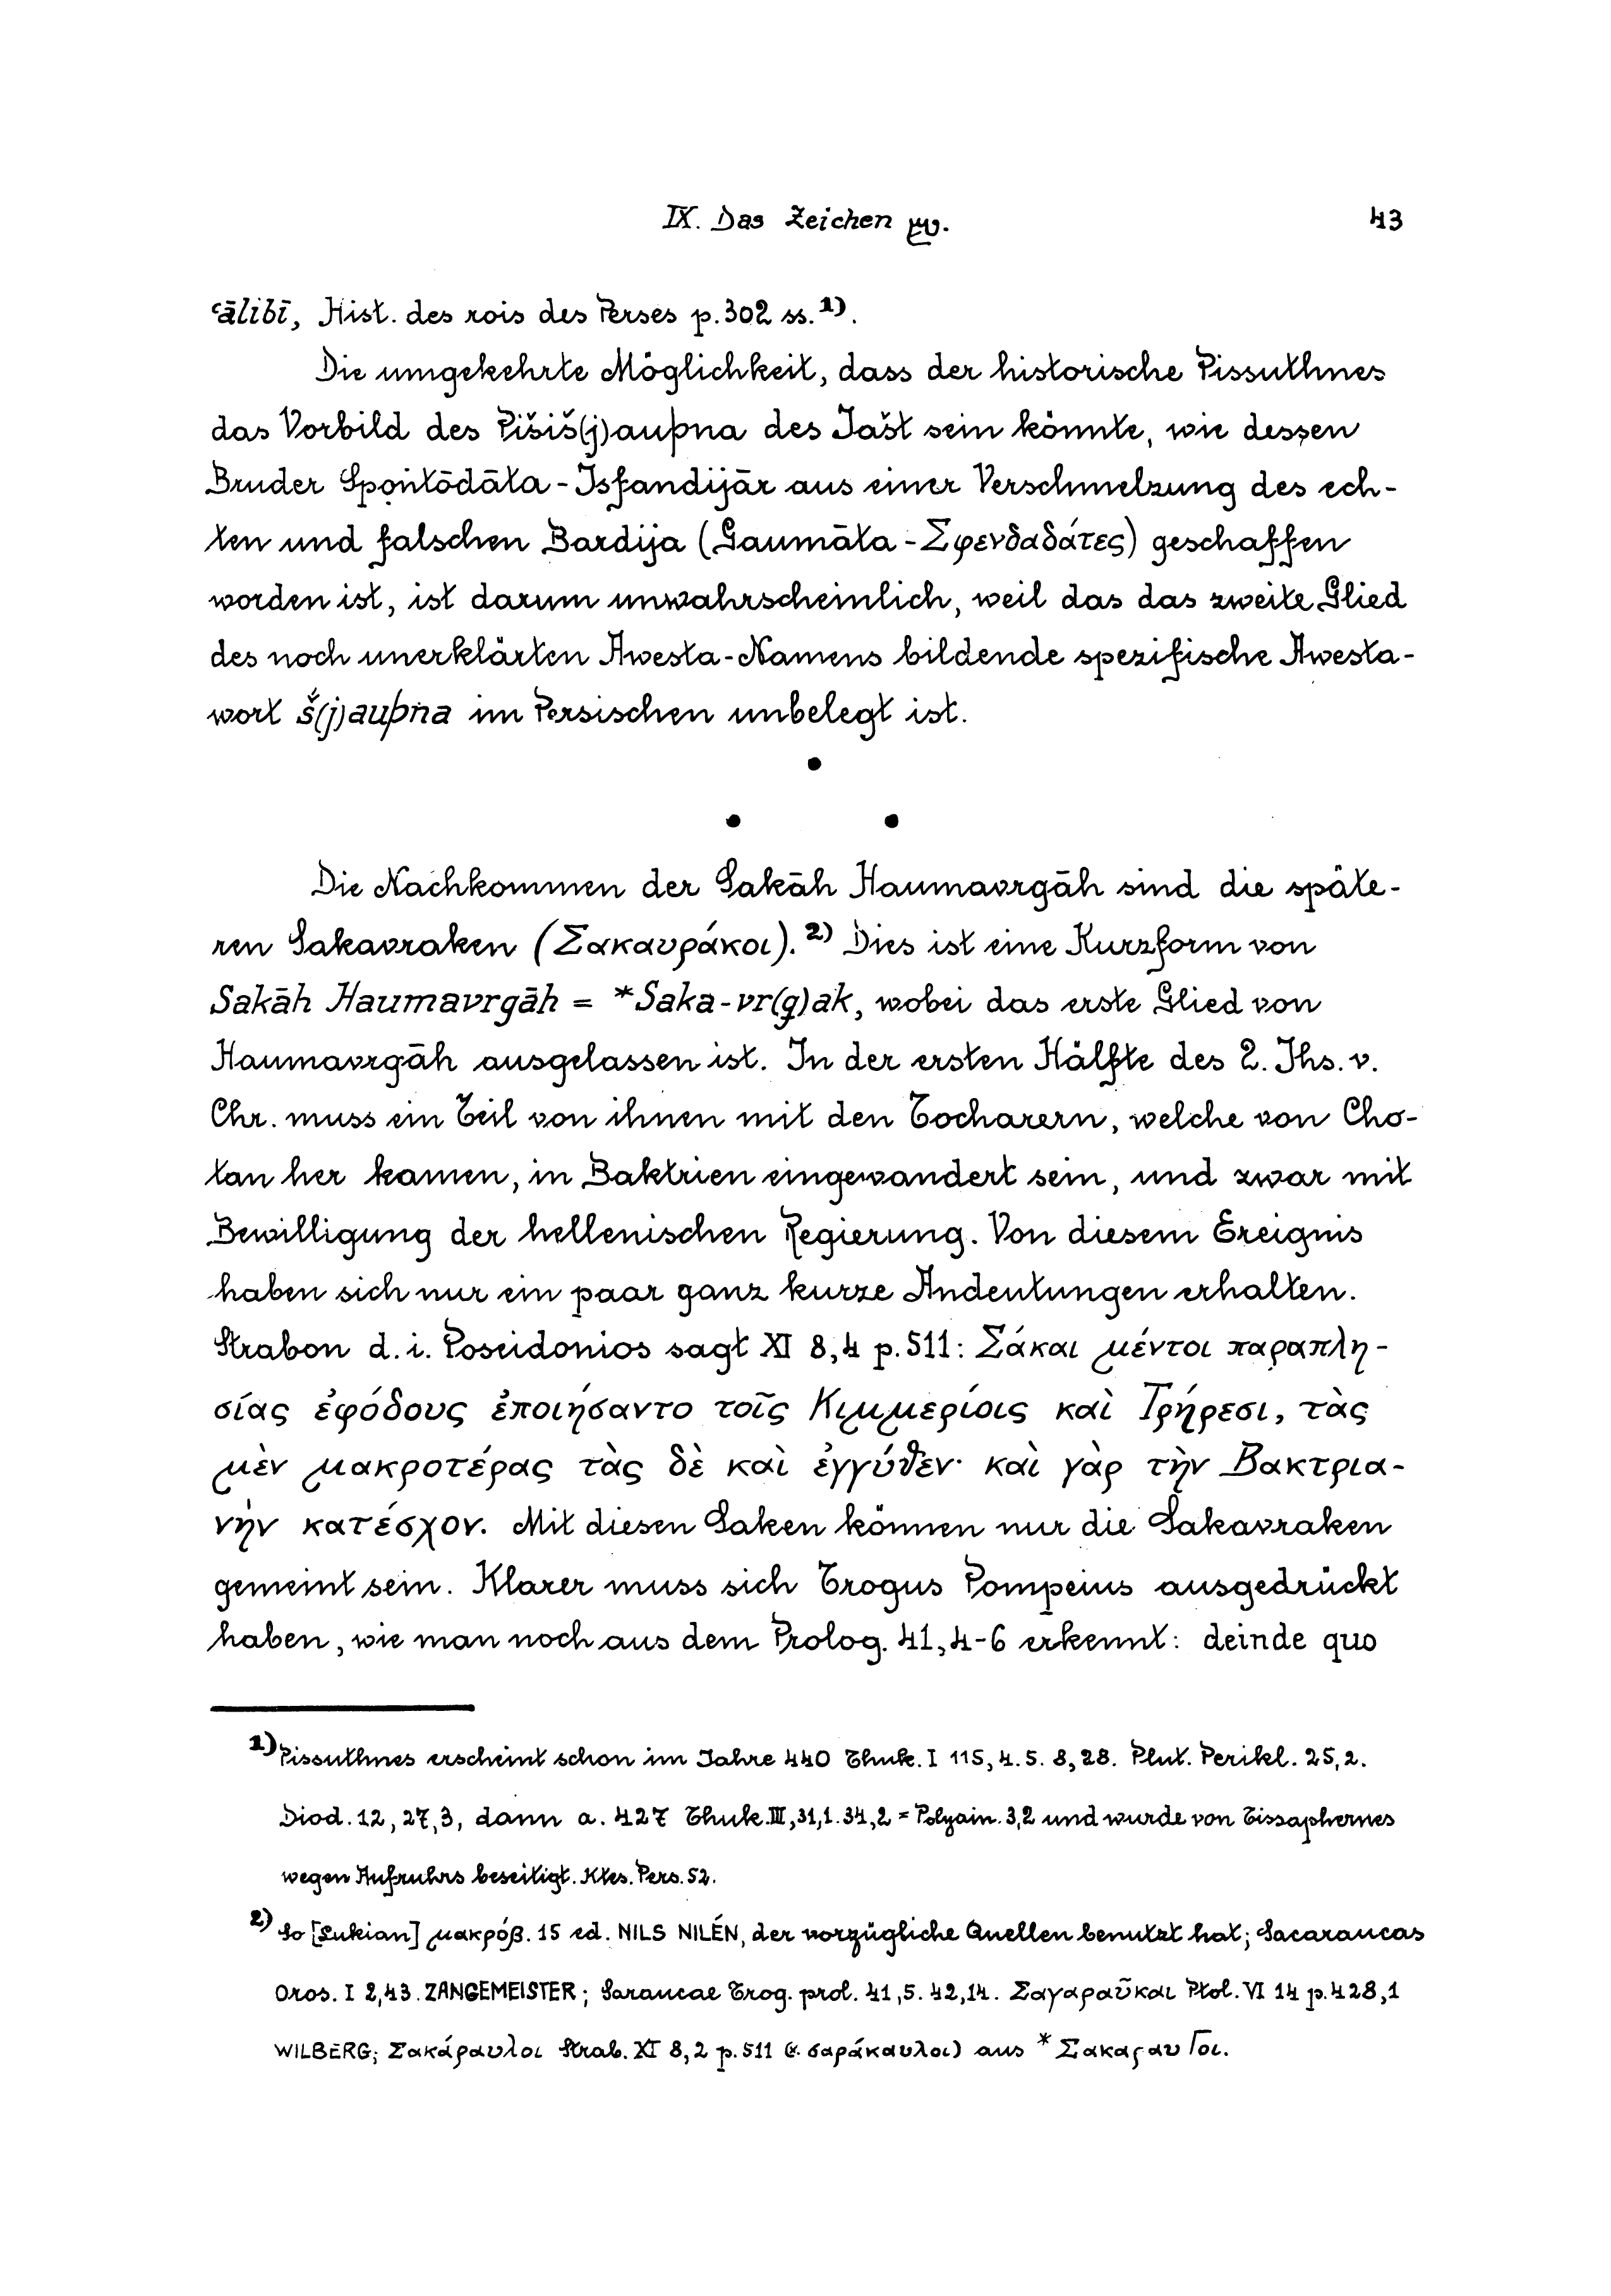 IX. Das Zeichen
43
ʿālibī, Hist. des rois des Perses p. 302 ss.¹⁾.
Die umgekehrte Möglichkeit, dass der historische Pissuthnes
das Vorbild des Pišiš(j)auþna des Jašt sein könnte, wie dessen
Bruder Spəntōdāta - Isfandijār aus einer Verschmelzung des ech-
ten und falschen Bardija (Gaumāta - Σφενδαδάτες) geschaffen
worden ist, ist darum unwahrscheinlich, weil das das zweite Glied
des noch unerklärten Awesta-Namens bildende spezifische Awesta-
wort š(j)auþna im Persischen unbelegt ist.
Die Nachkommen der Sakāh Haumavrgāh sind die späte-
ren Sakavraken (Σακαυράκοι).²⁾ Dies ist eine Kurzform von
Sakāh Haumavrgāh = *Saka-vr(g)ak, wobei das erste Glied von
Haumavrgāh ausgelassen ist. In der ersten Hälfte des 2. Jhs. v.
Chr. muss ein Teil von ihnen mit den Tocharern, welche von Cho-
tan her kamen, in Baktrien eingewandert sein, und zwar mit
Bewilligung der hellenischen Regierung. Von diesem Ereignis
haben sich nur ein paar ganz kurze Andeutungen erhalten.
Strabon d. i. Poseidonios sagt XI 8,4 p. 511: Σάκαι μέντοι παραπλη-
σίας ἐφόδους ἐποιήσαντο τοῖς Κιμμερίοις καὶ Τρήρεσι, τὰς
μὲν μακροτέρας τὰς δὲ καὶ ἐγγύθεν· καὶ γὰρ τὴν Βακτρια-
νὴν κατέσχον. Mit diesen Saken können nur die Sakavraken
gemeint sein. Klarer muss sich Trogus Pompeius ausgedrückt
haben, wie man noch aus dem Prolog. 41,4-6 erkennt: deinde quo
1) Pissuthnes erscheint schon im Jahre 440 Thuk. I 115, 4. 5. 8, 28. Plut. Perikl. 25, 2.
Diod. 12, 27, 3, dann a. 427 Thuk. III, 31,1. 34,2 = Polyain. 3,2 und wurde von Tissaphernes
wegen Aufruhrs beseitigt. Ktes. Pers. 52.
2) So [Lukian] μακρόβ. 15 ed. NILS NILÉN, der vorzügliche Quellen benutzt hat; Sacaraucas
Oros. I 2,43. ZANGEMEISTER; Saraucae Trog. prol. 41,5. 42,14. Σαγαραῦκαι Ptol. VI 14 p. 428,1
WILBERG; Σακάραυλοι Strab. XI 8,2 p. 511 (x. σαράκαυλοι) aus * ΣακαραυΓοι.